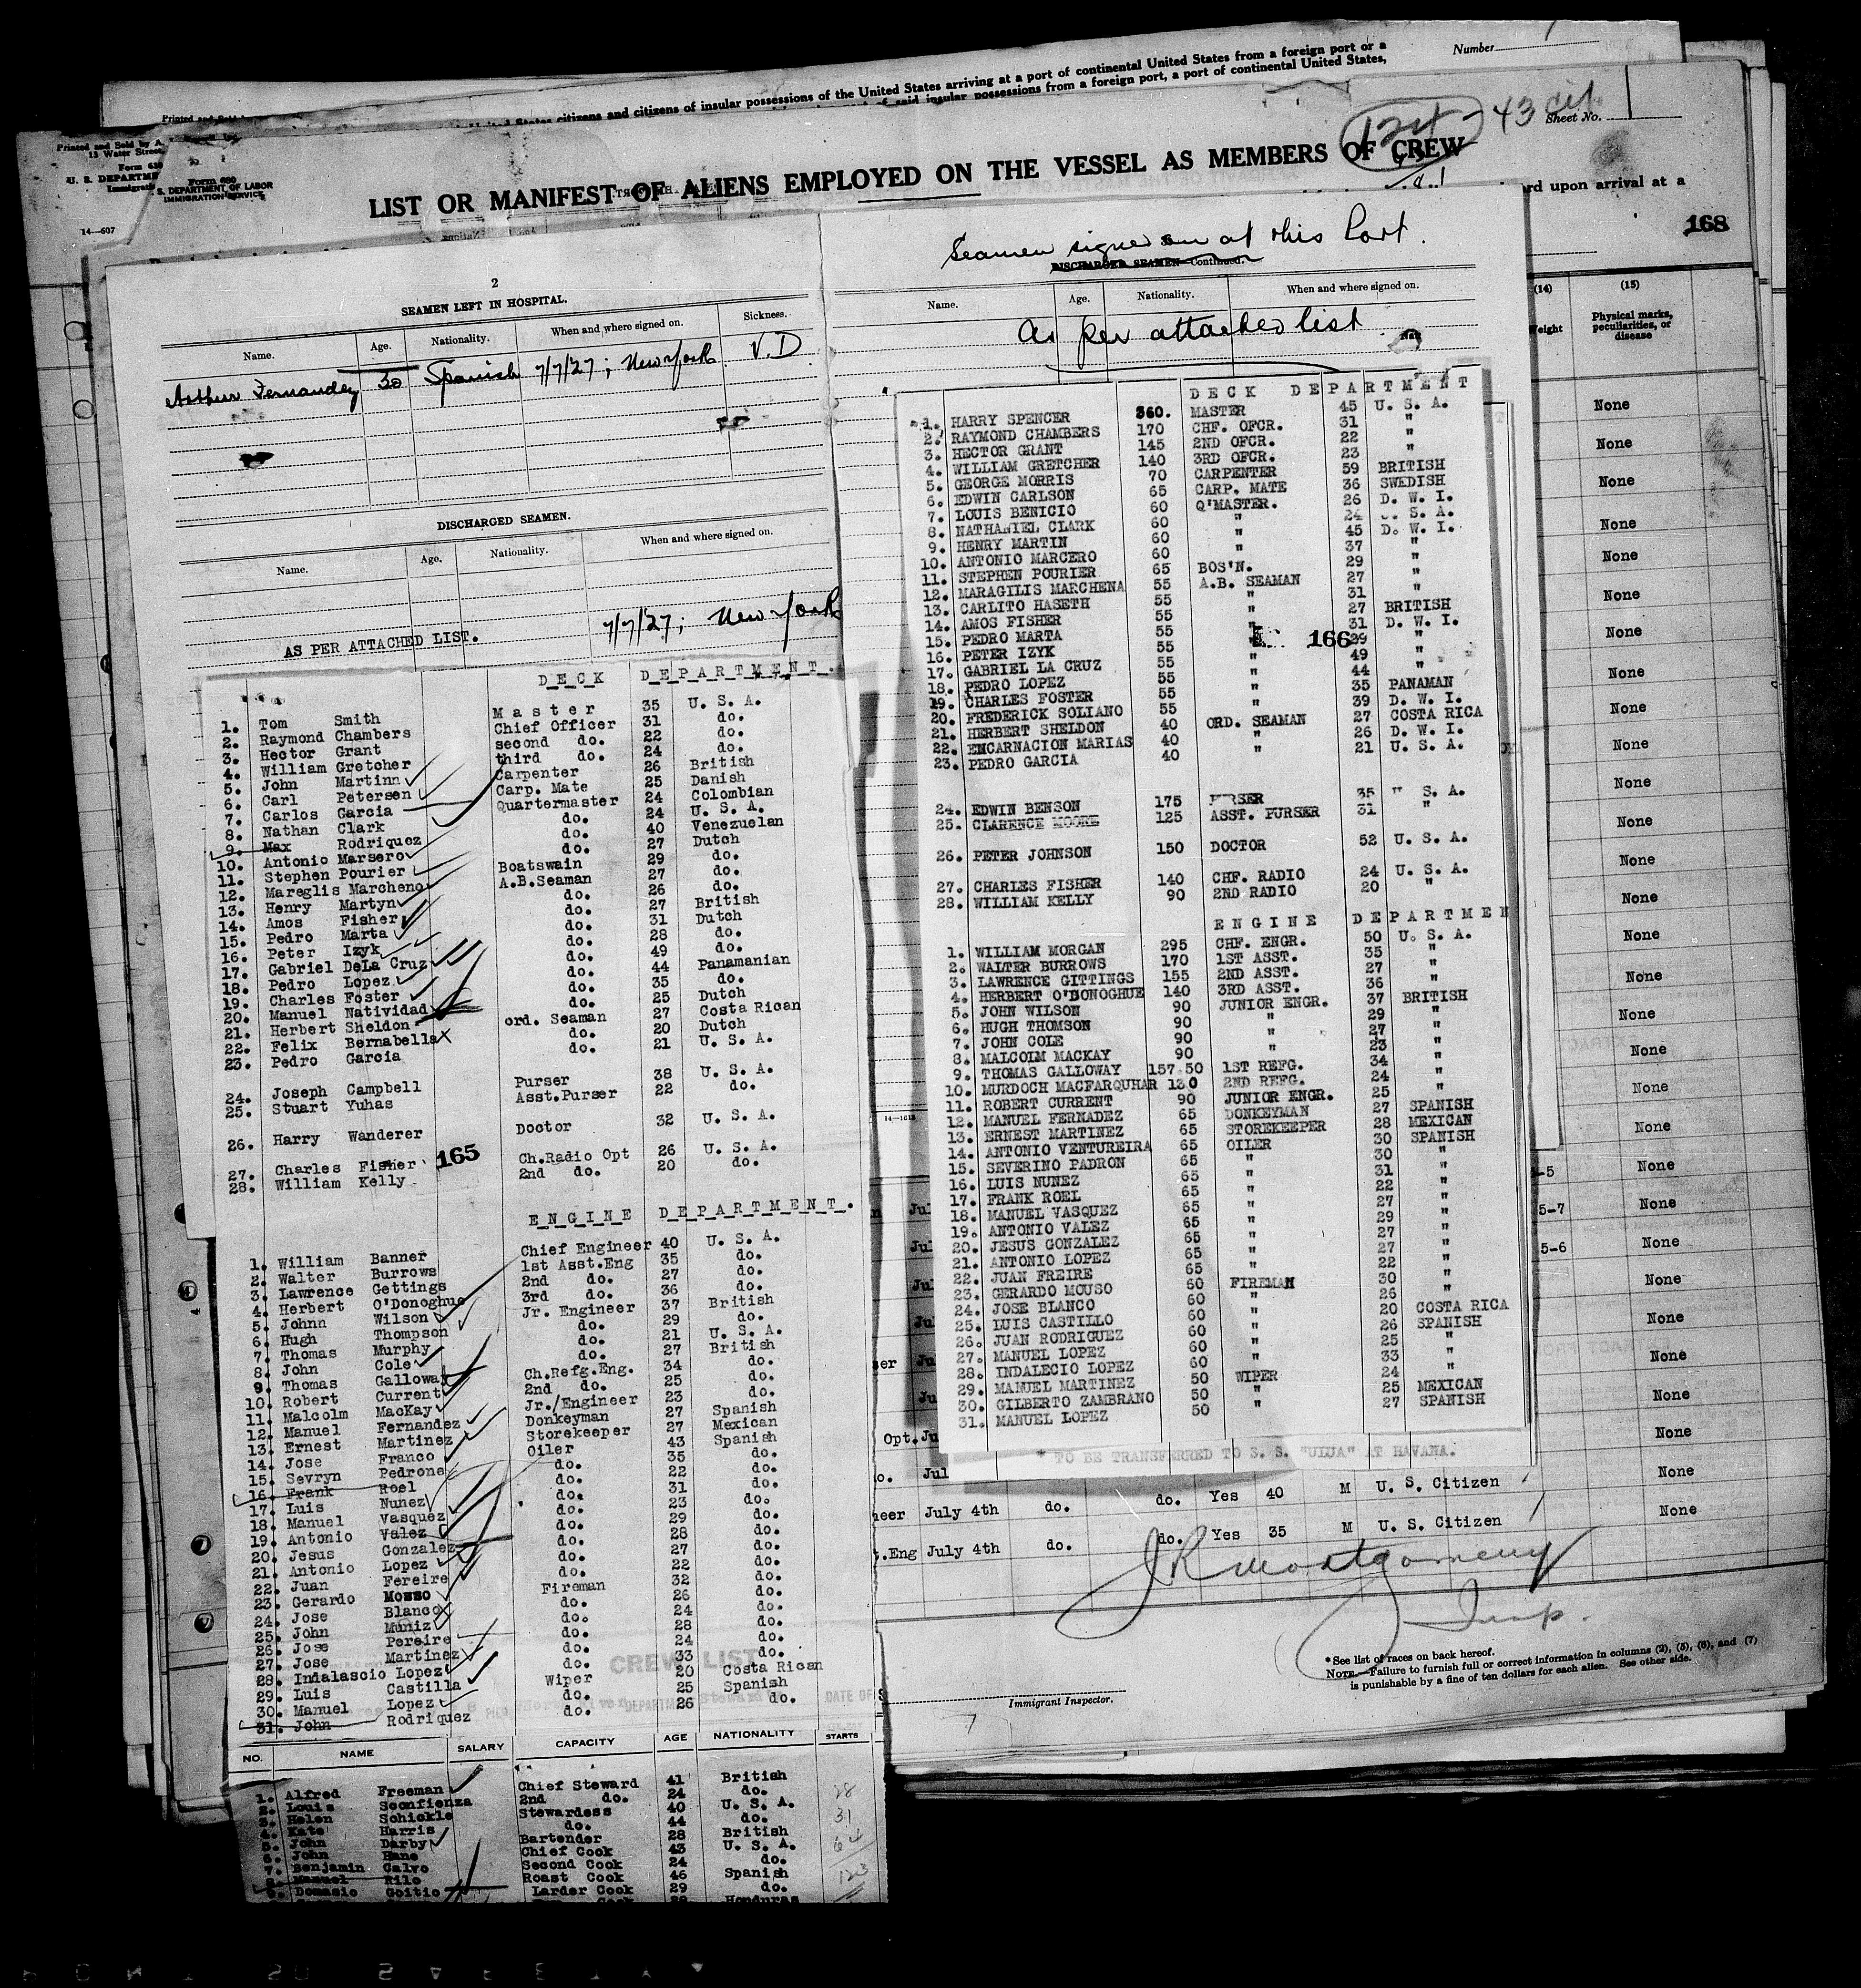 Number
citizens and citizens of insular possessions of the United States arriving at a port of continental United States from a foreign port or a
said insular possessions from a foreign port, a port of continental United States,
Printed and Sold by A.
13 Water Street
Form 630
U. S. DEPARTME
Immigrati
Form 680
S. DEPARTMENT OF LABOR
IMMIGRATION SERVICE
14—607
43
Sheet No. 1
LIST OR MANIFEST OF ALIENS EMPLOYED ON THE VESSEL AS MEMBERS OF CREW
rd upon arrival at a
168
2
SEAMEN LEFT IN HOSPITAL.
Name. Age. Nationality. When and where signed on. Sickness.
Arthur Fernandez 30 Spanish 7/7/27; New York V.D
DISCHARGED SEAMEN.
Name. Age. Nationality. When and where signed on.
AS PER ATTACHED LIST. 7/7/27; New York
DECK DEPARTMENT.
1. Tom Smith Master 35 U. S. A.
2. Raymond Chambers Chief Officer 31 do.
3. Hector Grant second do. 22 do.
4. William Gretcher third do. 24 do.
5. John Martinn Carpenter 26 British
6. Carl Petersen Carp. Mate 25 Danish
7. Carlos Garcia Quartermaster 24 Colombian
8. Nathan Clark do. 24 U. S. A.
9. Max Rodriquez do. 40 Venezuelan
10. Antonio Marsero do. 27 Dutch
11. Stephen Pourier Boatswain 29 do.
12. Mareglis Marcheno A.B.Seaman 27 do.
13. Henry Martyn do. 26 do.
14. Amos Fisher do. 27 British
15. Pedro Marta do. 31 Dutch
16. Peter Izyk do. 28 do.
17. Gabriel DeLa Cruz do. 49 do.
18. Pedro Lopez do. 44 Panamanian
19. Charles Foster do. 35 do.
20. Manuel Natividad do. 25 Dutch
21. Herbert Sheldon ord. Seaman 27 Costa Rican
22. Felix Bernabella do. 20 Dutch
23. Pedro Garcia do. 21 U. S. A.
24. Joseph Campbell Purser 38 U. S. A.
25. Stuart Yuhas Asst.Purser 22 do.
26. Harry Wanderer Doctor 32 U. S. A.
27. Charles Fisher Ch.Radio Opt 26 U. S. A.
28. William Kelly 2nd do. 20 do.
165
ENGINE DEPARTMENT.
1. William Banner Chief Engineer 40 U. S. A.
2. Walter Burrows 1st Asst.Eng 35 do.
3. Lawrence Gettings 2nd do. 27 do.
4. Herbert O'Donoghue 3rd do. 36 do.
5. Johnn Wilson Jr. Engineer 37 British
6. Hugh Thompson do. 29 do.
7. Thomas Murphy do. 21 U. S. A.
8. John Cole do. 27 British
9. Thomas Galloway Ch.Refg.Eng. 34 do.
10. Robert Current 2nd do. 25 do.
11. Malcolm MacKay Jr./Engineer 23 do.
12. Manuel Fernandez Donkeyman 27 Spanish
13. Ernest Martinez Storekeeper 27 Mexican
14. Jose Franco Oiler 43 Spanish
15. Sevryn Pedrone do. 35 do.
16. Frank Roel do. 22 do.
17. Luis Nunez do. 31 do.
18. Manuel Vasquez do. 23 do.
19. Antonio Valez do. 29 do.
20. Jesus Gonzalez do. 28 do.
21. Antonio Lopez do. 27 do.
22. Juan Fereire do. 22 do.
23. Gerardo Mosso Fireman 32 do.
24. Jose Blanco do. 26 do.
25. John Muniz do. 24 do.
26. Jose Pereire do. 28 do.
27. Jose Martinez do. 24 do.
28. Indalascio Lopez do. 33 do.
29. Luis Castilla Wiper 20 Costa Rican
30. Manuel Lopez do. 25 Spanish
31. John Rodriquez do. 26 do.
CREW LIST
NO. NAME SALARY CAPACITY AGE NATIONALITY STARTS
1. Alfred Freeman Chief Steward 41 British
2. Louis Sconfienza 2nd do. 24 do.
3. Helen Schickle Stewardess 40 U. S. A.
4. Kate Harris do. 44 do.
5. John Darby Bartender 28 British
6. John Hane Chief Cook 43 U. S. A.
7. Benjamin Calvo Second Cook 24 do.
8. Manuel Rilo Roast Cook 46 Spanish
9. Domasio Goitio Larder Cook 29 do.
Honduras
28
31
64
123
Seamen signed on at this Port.
DISCHARGED SEAMEN—Continued.
Name. Age. Nationality. When and where signed on.
As per attached list
DECK DEPARTMENT
1. HARRY SPENCER 360. MASTER 45 U. S. A.
2. RAYMOND CHAMBERS 170 CHF. OFCR. 31 "
3. HECTOR GRANT 145 2ND OFCR. 22 "
4. WILLIAM GRETCHER 140 3RD OFCR. 23 "
5. GEORGE MORRIS 70 CARPENTER 59 BRITISH
6. EDWIN CARLSON 65 CARP. MATE 36 SWEDISH
7. LOUIS BENICIO 60 Q'MASTER. 26 D. W. I.
8. NATHANIEL CLARK 60 " 24 U. S. A.
9. HENRY MARTIN 60 " 45 D. W. I.
10. ANTONIO MARCERO 60 " 37 "
11. STEPHEN POURIER 65 BOS'N. 29 "
12. MARAGILIS MARCHENA 55 A.B. SEAMAN 27 "
13. CARLITO HASETH 55 " 31 "
14. AMOS FISHER 55 " 27 BRITISH
15. PEDRO MARTA 55 " 31 D. W. I.
16. PETER IZYK 55 " 29 "
17. GABRIEL LA CRUZ 55 " 49 "
18. PEDRO LOPEZ 55 " 44 "
19. CHARLES FOSTER 55 " 35 PANAMAN
20. FREDERICK SOLIANO 55 " 39 D. W. I.
21. HERBERT SHELDON 40 ORD. SEAMAN 27 COSTA RICA
22. ENCARNACION MARIAS 40 " 26 D. W. I.
23. PEDRO GARCIA 40 " 21 U. S. A.
166
24. EDWIN BENSON 175 PURSER 35 " S. A.
25. CLARENCE MOORE 125 ASST. PURSER 31 "
26. PETER JOHNSON 150 DOCTOR 52 U. S. A.
27. CHARLES FISHER 140 CHF. RADIO 24 U. S. A.
28. WILLIAM KELLY 90 2ND RADIO 20 "
ENGINE DEPARTMEN
1. WILLIAM MORGAN 295 CHF. ENGR. 50 U. S. A.
2. WALTER BURROWS 170 1ST ASST. 35 "
3. LAWRENCE GITTINGS 155 2ND ASST. 27 "
4. HERBERT O'DONOGHUE 140 3RD ASST. 36 "
5. JOHN WILSON 90 JUNIOR ENGR. 37 BRITISH
6. HUGH THOMSON 90 " 29 "
7. JOHN COLE 90 " 27 "
8. MALCOLM MACKAY 90 " 23 "
9. THOMAS GALLOWAY 157.50 1ST REFG. 34 "
10. MURDOCH MACFARQUHAR 130 2ND REFG. 24 "
11. ROBERT CURRENT 90 JUNIOR ENGR. 25 "
12. MANUEL FERNADEZ 65 DONKEYMAN 27 SPANISH
13. ERNEST MARTINEZ 65 STOREKEEPER 28 MEXICAN
14. ANTONIO VENTUREIRA 65 OILER 30 SPANISH
15. SEVERINO PADRON 65 " 30 "
16. LUIS NUNEZ 65 " 31 "
17. FRANK ROEL 65 " 22 "
18. MANUEL VASQUEZ 65 " 27 "
19. ANTONIO VALEZ 65 " 29 "
20. JESUS GONZALEZ 65 " 27 "
21. ANTONIO LOPEZ 65 " 27 "
22. JUAN FREIRE 65 " 22 "
23. GERARDO MOUSO 60 FIREMAN 30 "
24. JOSE BLANCO 60 " 26 "
25. LUIS CASTILLO 60 " 20 COSTA RICA
26. JUAN RODRIGUEZ 60 " 26 SPANISH
27. MANUEL LOPEZ 60 " 25 "
28. INDALECIO LOPEZ 60 " 33 "
29. MANUEL MARTINEZ 50 WIPER 24 "
30. GILBERTO ZAMBRANO 50 " 25 MEXICAN
31. MANUEL LOPEZ 50 " 27 SPANISH
* TO BE TRANSFERRED TO S. S. "ULUA" AT HAVANA.
(14) (15)
Weight Physical marks, peculiarities, or disease
None
None
None
None
None
None
None
None
None
None
None
None
None
None
None
None
None
None
None
None
None
5 None
5-7 None
5-6 None
None
None
None
None
None
None
None
eer July 4th do. do. Yes 40 M U. S. Citizen
None
t.Eng July 4th do. do. Yes 35 M U. S. Citizen
JR Montgomery
Insp.
Immigrant Inspector.
* See list of races on back hereof.
NOTE.—Failure to furnish full or correct information in columns (2), (5), (6), and (7)
is punishable by a fine of ten dollars for each alien. See other side.